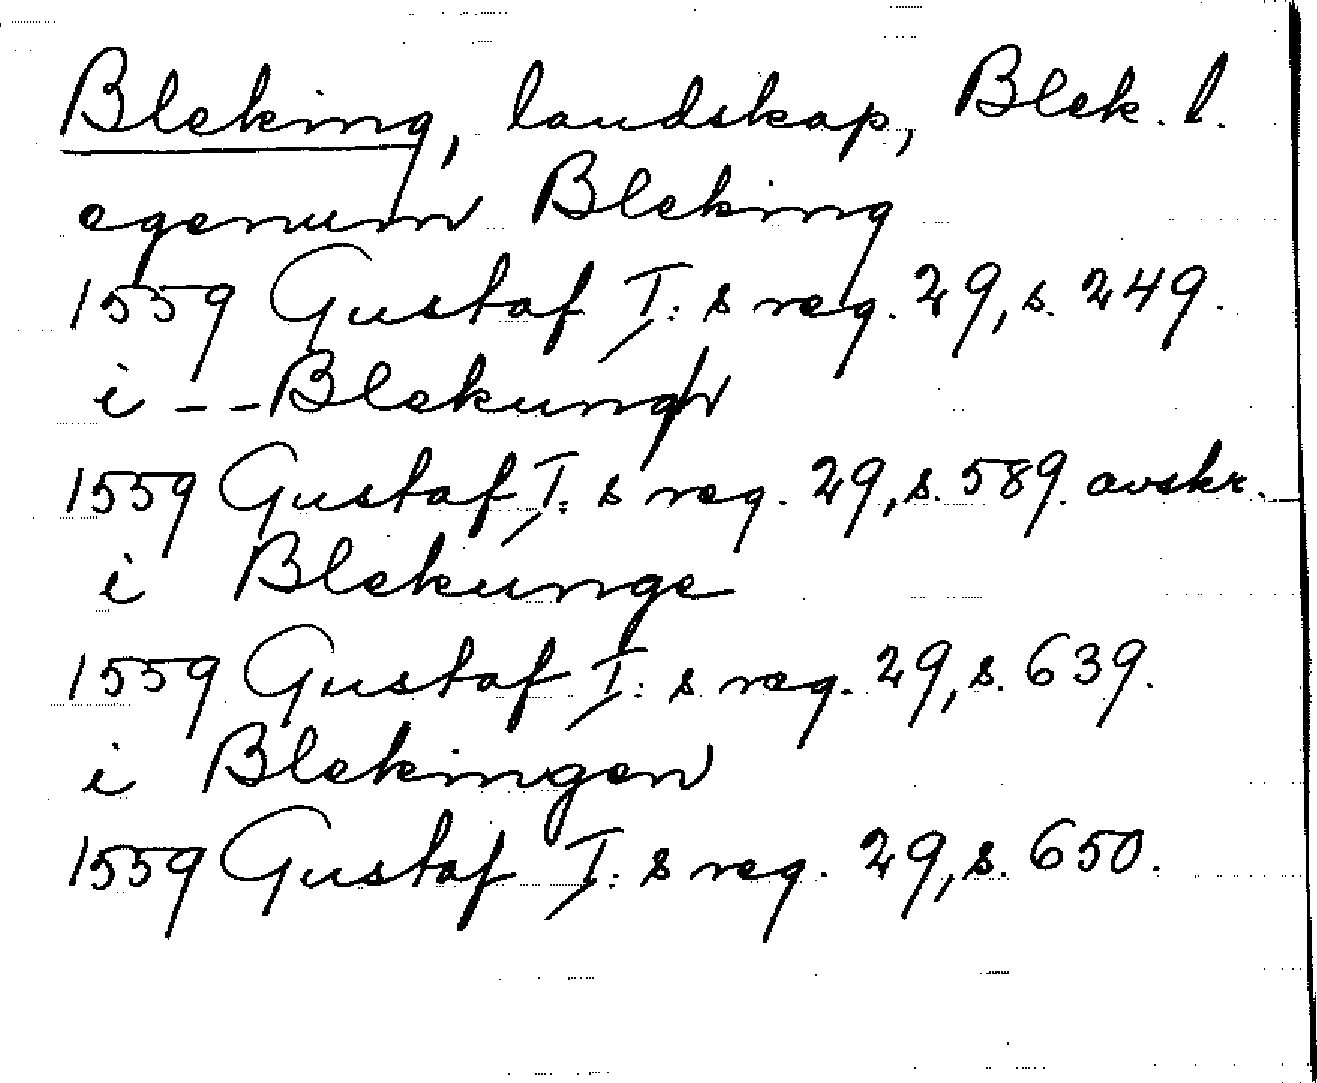 Bleking, landskap, Blek. l.
egenum Bleking
1559 Gustaf I:s reg. 29, s. 249.
i -- Blekung
1559 Gustaf I:s reg. 29, s. 589. avskr.
i Blekunge
1559 Gustaf I:s reg. 29, s. 639.
i Blekingen
1559 Gustaf I:s reg. 29, s. 650.